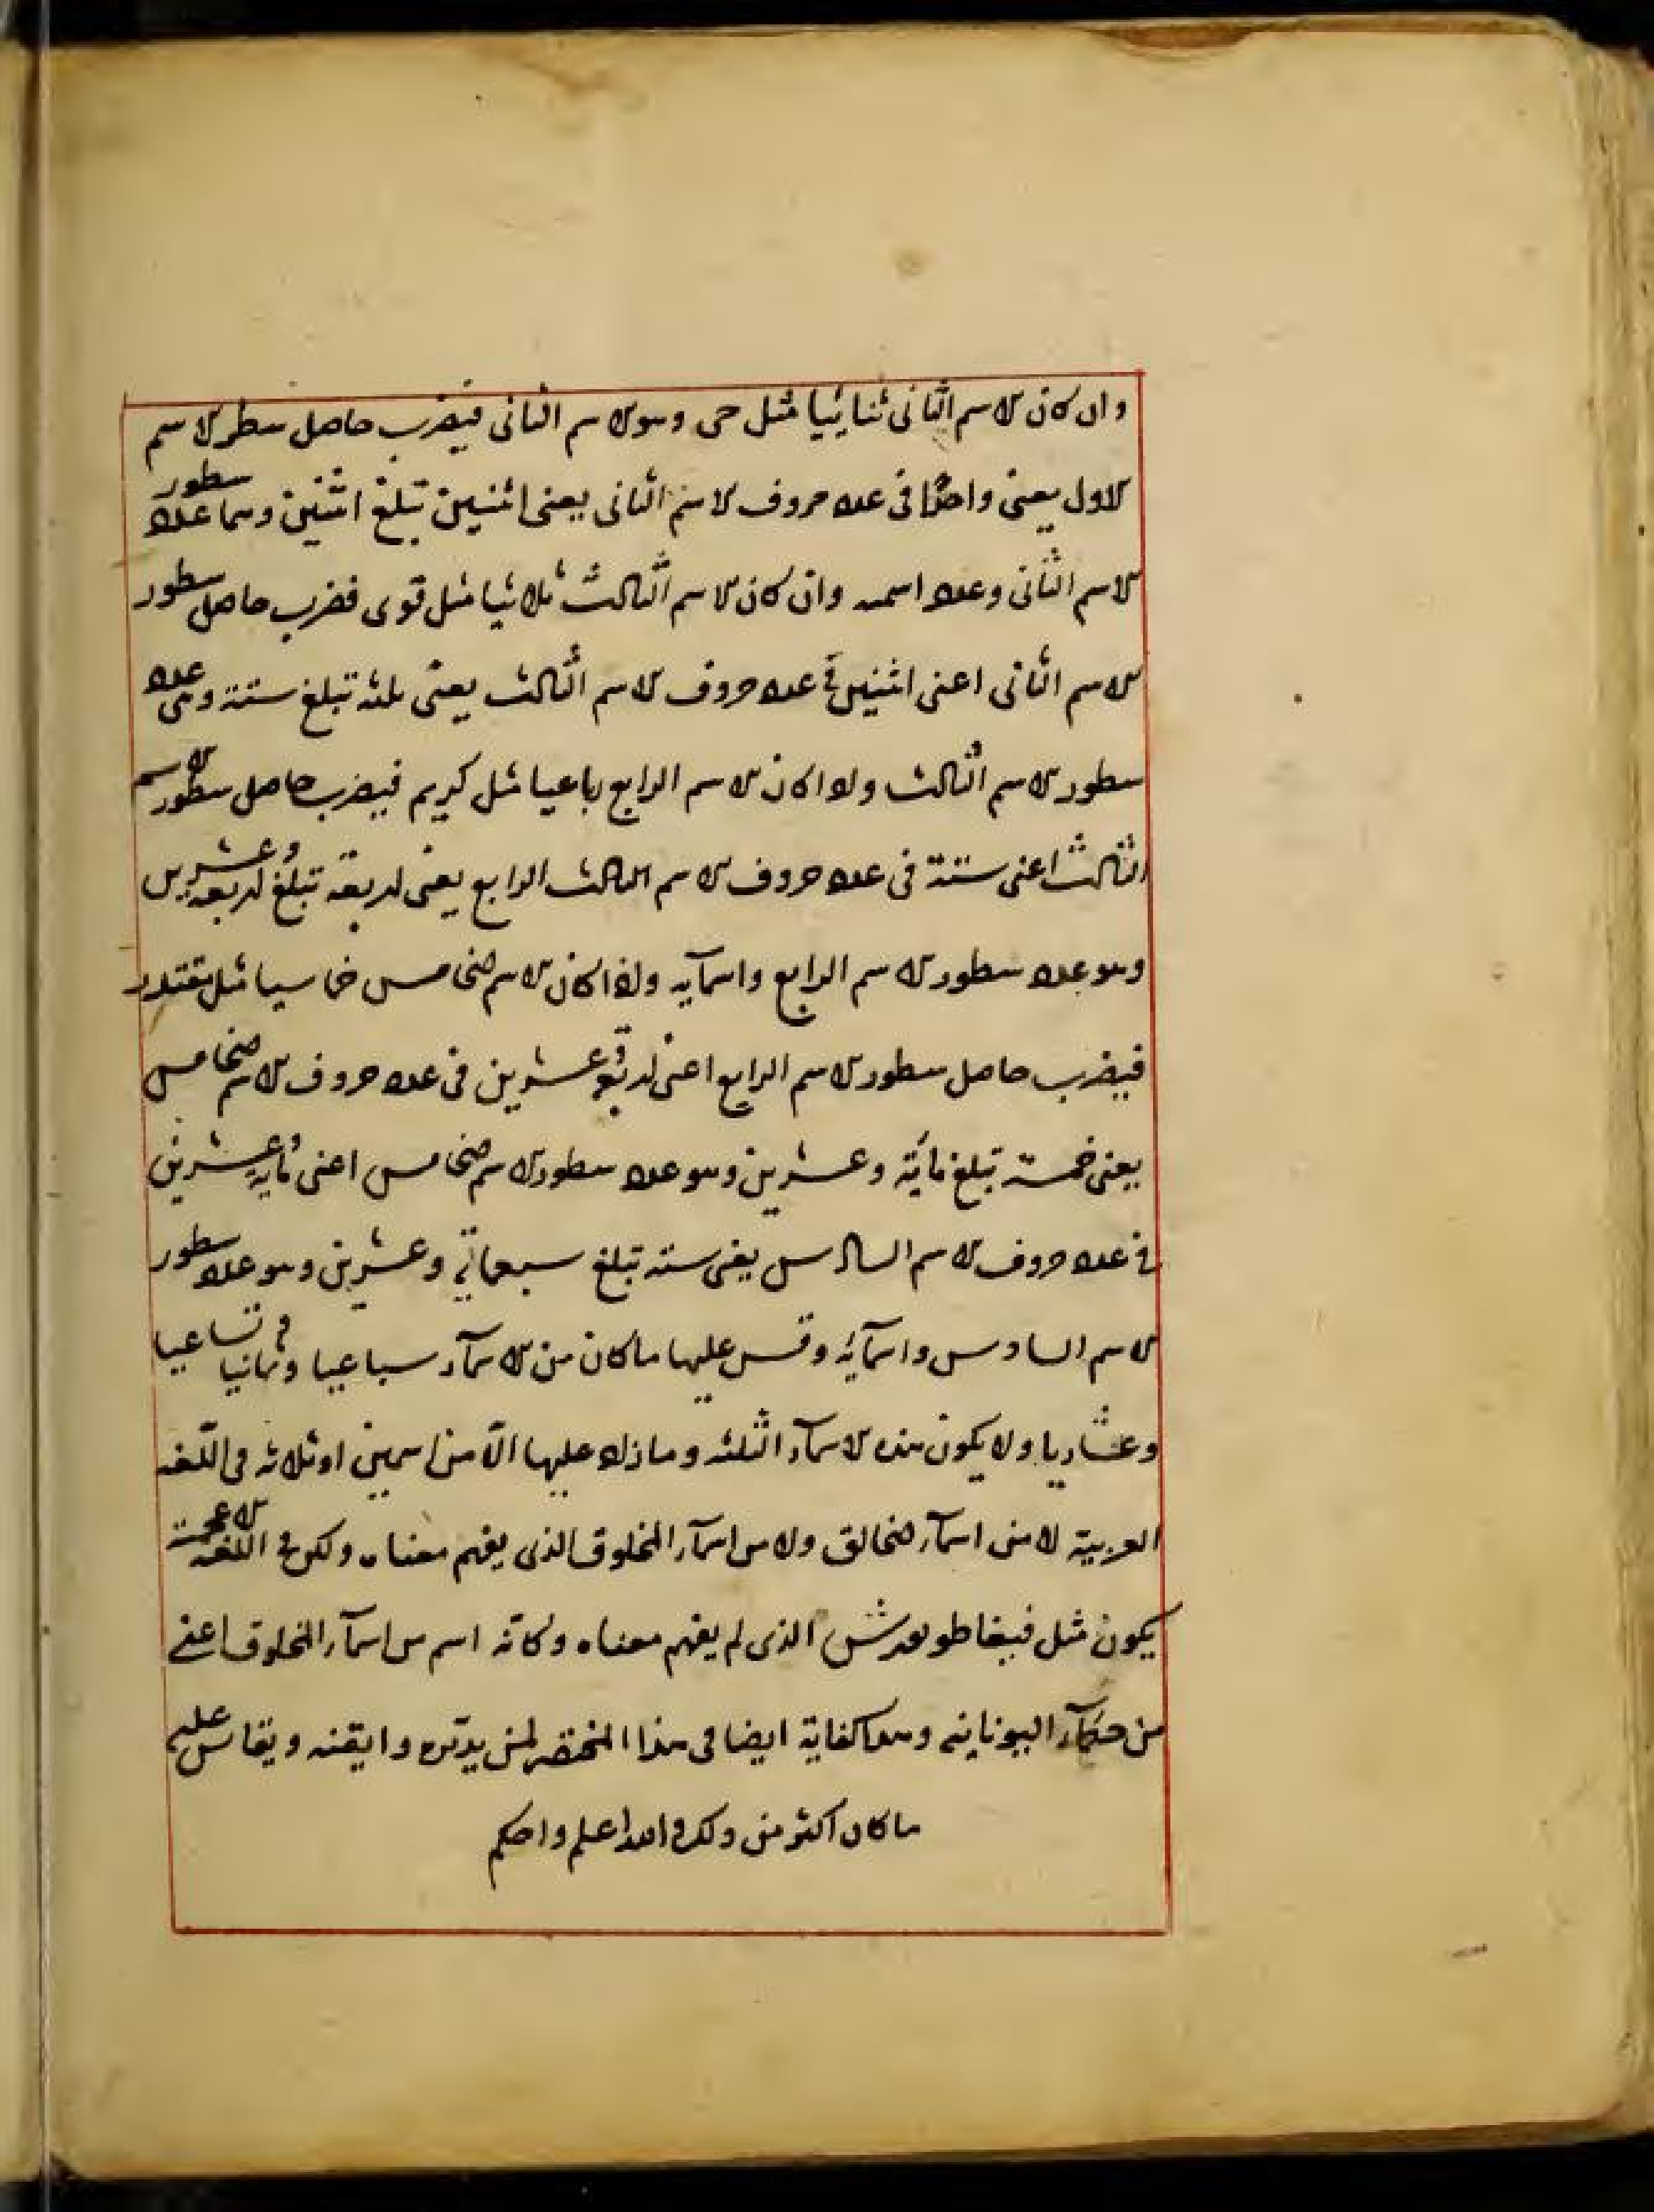 وان كان الاسم الثانى ثنائيا مثل حى وهو الاسم الثانى فيضرب حاصل سطر الاسم
الاول يعنى واحدًا فى عدد حروف الاسم الثانى يعنى اثنين تبلغ اثنين وهما عدد سطور
الاسم الثانى وعدد اسمه وان كان الاسم الثالث ثلاثيا مثل قوى فضرب حاصل سطور
الاسم الثانى اعنى اثنين فى عدد حروف الاسم الثالث يعنى ثلثه تبلغ ستة وهى عدد
سطور الاسم الثالث واذا كان الاسم الرابع رباعيا مثل كريم فيضرب حاصل سطور الاسم
الثالث اعنى ستة فى عدد حروف الاسم الثالث الرابع يعنى اربعة تبلغ اربعة وعشرين
وهو عدد سطور الاسم الرابع واسمآيه واذا كان الاسم الخامس خماسيا مثل مقتدر
فيضرب حاصل سطور الاسم الرابع اعنى اربعة وعشرين فى عدد حروف الاسم الخامس
يعنى خمسة تبلغ مائة وعشرين وهو عدد سطور الاسم الخامس اعنى مايه وعشرين
فى عدد حروف الاسم السادس يعنى ستة تبلغ سبعمائة وعشرين وهو عدد سطور
الاسم السادس واسمآئه وقس عليها ما كان من الاسمآء سباعيا وثمانيا وتساعيا
وعشاريا ولا يكون هذه الاسمآء الثلثه وما زاد عليها الّا من اسمين او ثلاثه فى اللّغه
العربية لا من اسمآء الخالق ولا من اسمآء المخلوق الذى يفهم معناه ولكن فى اللغة
يكون مثل الذى لم يفهم معناه وكانه اسم من اسمآء المخلوق اعنى
من حكمآء اليونانيه وهذا كفاية ايضا فى هذا المختصر لمن يدبّره وايقنه ويقاس عليه
ما كان اكثر من ذلك والله اعلم واحكم